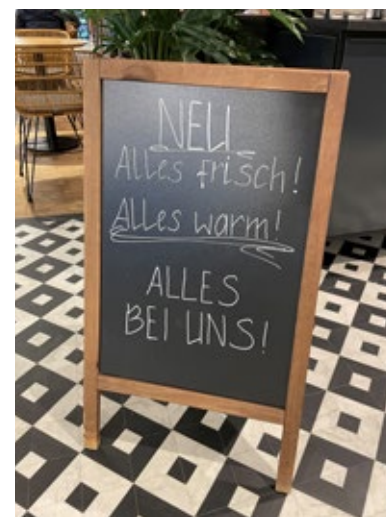 NEU
Alles frisch!
Alles warm!
ALLES
BEI UNS!